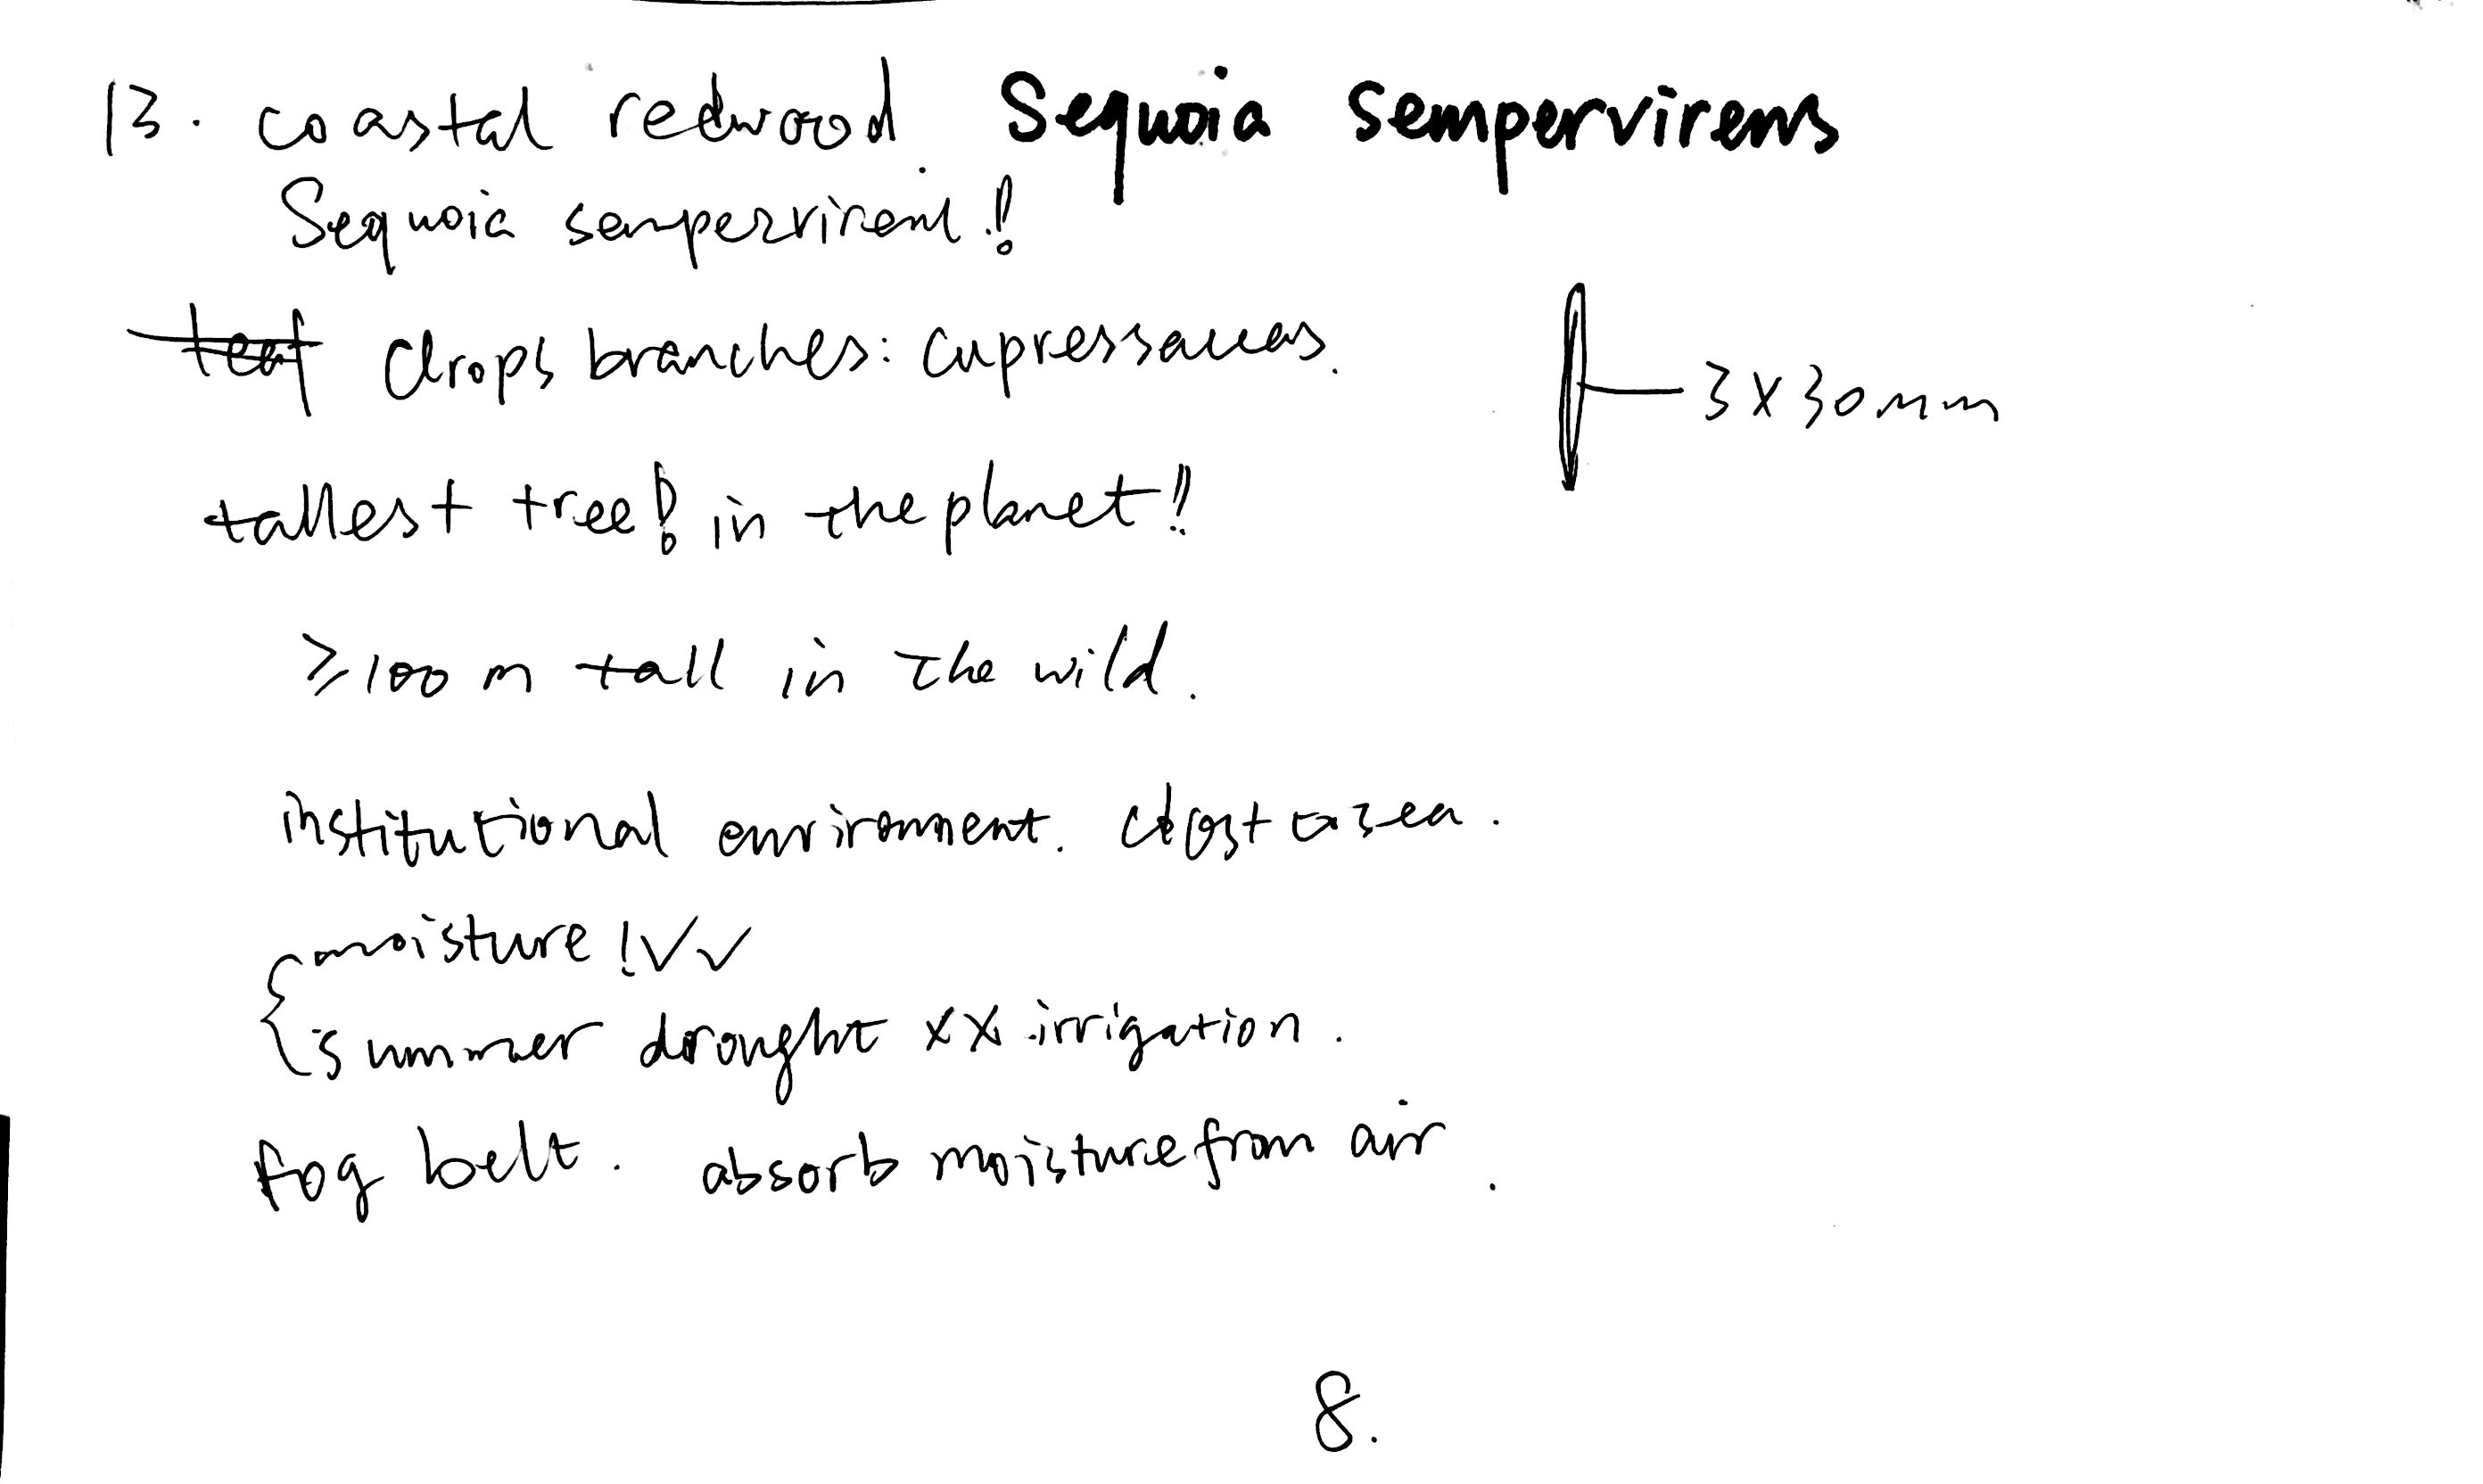 13. coastal redwood. Sequoia sempervirens
Sequoia sempervirens!!
drops branches: cupressaceas.
3 x 30mm
tallest tree! in the planet!!
≥100 m tall in the wild.
institutional environment. close to sea.
moisture! ✓✓
summer drought xx irrigation.
fog belt. absorb moisture from air.
8.